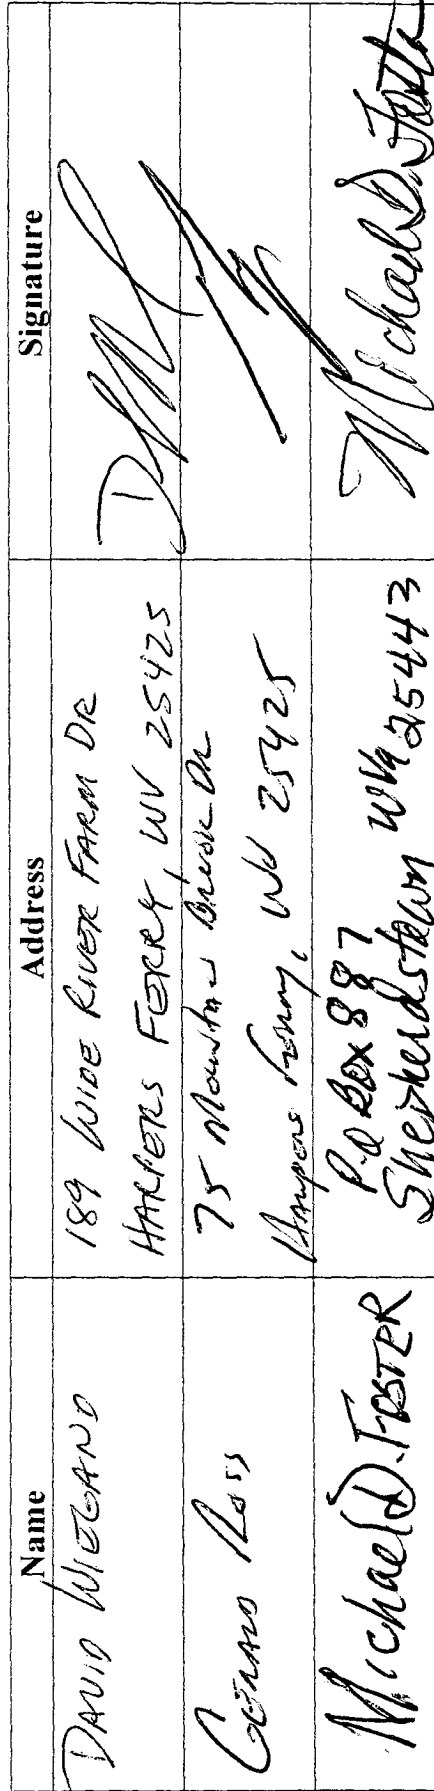 Name Address Signature
DAVID WIEGAND
189 WIDE RIVER FARM DR
HARPERS FERRY, WV 25425
GERALD ROSS
75 Mountain Brook DR
Harpers Ferry, WV 25425
Michael D. FOSTER
P.O Box 887
Shepherdstown WVa 25443
Michael D. Foster